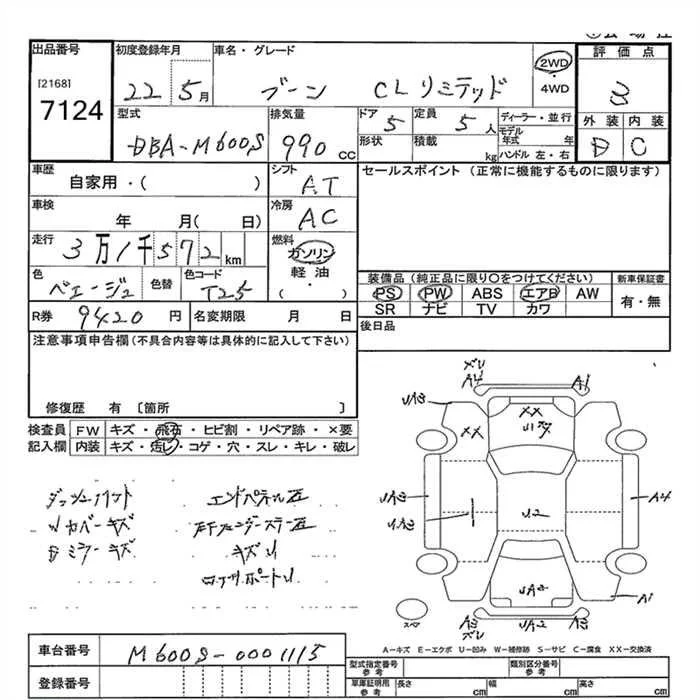 出品番号 初度登録年月 車名・グレード 2WD・4WD 評価点
[2168] 7124 22 5月 ブーン CLリミテッド 3
型式 排気量 ドア 定員 ディーラー・並行 外装 内装
DBA-M600S 990cc 5 5人 モデル年式 年 D C
形状 積載 kg ハンドル 左・右
車歴 シフト セールスポイント (正常に機能するものに限ります)
自家用・( ) AT
車検 冷房
年 月( 日) AC
走行 3万1千572km 燃料
ガソリン
軽油
・( )
色 ベージュ 色替 色コード T25
装備品 (純正品に限り○をつけてください) 新車保証書
PS PW ABS エアB AW 有・無
SR ナビ TV カワ
R券 9420円 名変期限 月 日 後日品
注意事項申告欄(不具合内容等は具体的に記入して下さい)
修復歴 有 [箇所 ]
検査員 FW キズ・飛石・ヒビ割・リペア跡・×要
記入欄 内装 キズ・汚レ・コゲ・穴・スレ・キレ・破レ
ダッシュ
Wカバーキズ
キズU
ズレ
A4 A1
UA3
XX XX
UA3 A4
UA3 U2
UA2
A3 UA2 A3 A1
ズレ
スペア
A-キズ E-エクボ U-凹み W-補修跡 S-サビ C-腐食 XX-交換済
車台番号 M600S-0001115 型式指定番号 参考 類別区分番号 参考
登録番号 車庫証明用 参考 長さ cm 幅 cm 高さ cm